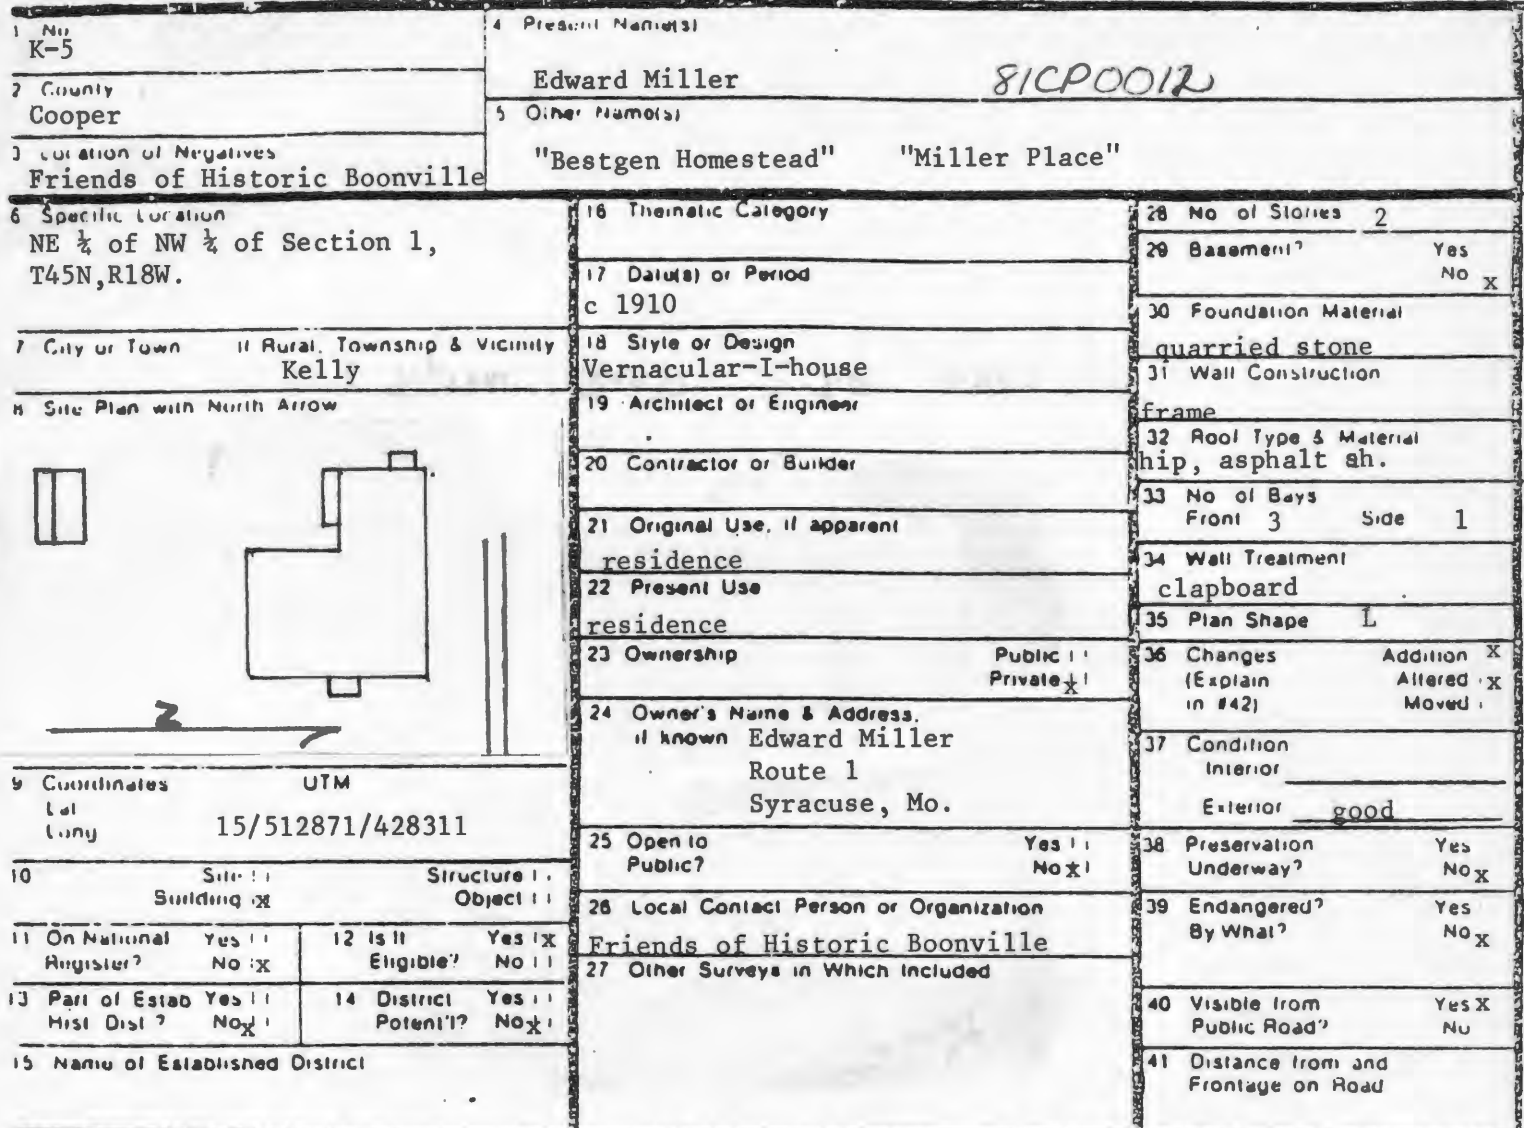 1 No
K-5
2 County
Cooper
3 Location of Negatives
Friends of Historic Boonville
4 Present Name(s)
Edward Miller 81CP0012
5 Other Name(s)
"Bestgen Homestead" "Miller Place"
6 Specific Location
NE ¼ of NW ¼ of Section 1,
T45N,R18W.
7 City or Town If Rural, Township & Vicinity
Kelly
8 Site Plan with North Arrow
N
9 Coordinates UTM
Lat
Long 15/512871/428311
10 Site Structure
Building x Object
11 On National Yes 12 Is It Yes x
Register? No x Eligible? No
13 Part of Estab Yes 14 District Yes
Hist Dist ? No x Potent'l? No x
15 Name of Established District
16 Thematic Category
17 Date(s) or Period
c 1910
18 Style or Design
Vernacular-I-house
19 Architect or Engineer
20 Contractor or Builder
21 Original Use, if apparent
residence
22 Present Use
residence
23 Ownership Public
Private x
24 Owner's Name & Address,
if known Edward Miller
Route 1
Syracuse, Mo.
25 Open to Yes
Public? No x
26 Local Contact Person or Organization
Friends of Historic Boonville
27 Other Surveys in Which Included
28 No of Stories 2
29 Basement? Yes
No x
30 Foundation Material
quarried stone
31 Wall Construction
frame
32 Roof Type & Material
hip, asphalt sh.
33 No of Bays
Front 3 Side 1
34 Wall Treatment
clapboard
35 Plan Shape L
36 Changes Addition x
(Explain Altered x
in #42) Moved
37 Condition
Interior
Exterior good
38 Preservation Yes
Underway? No x
39 Endangered? Yes
By What? No x
40 Visible from Yes X
Public Road? No
41 Distance from and
Frontage on Road